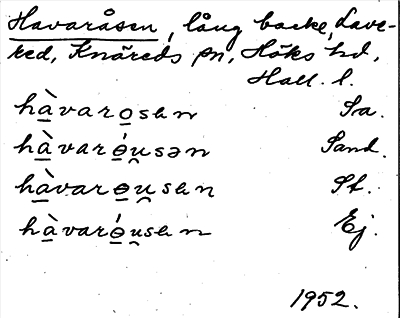 Havaråsen, lång backe, Lave-
red, Knäreds sn, Höks hd,
Hall. l.
hàvarosan Sa.
hàvarɵ́u̯sən Sand.
hàvarɵu̯san St.
hàvarɵ́u̯san Ej.
1952.